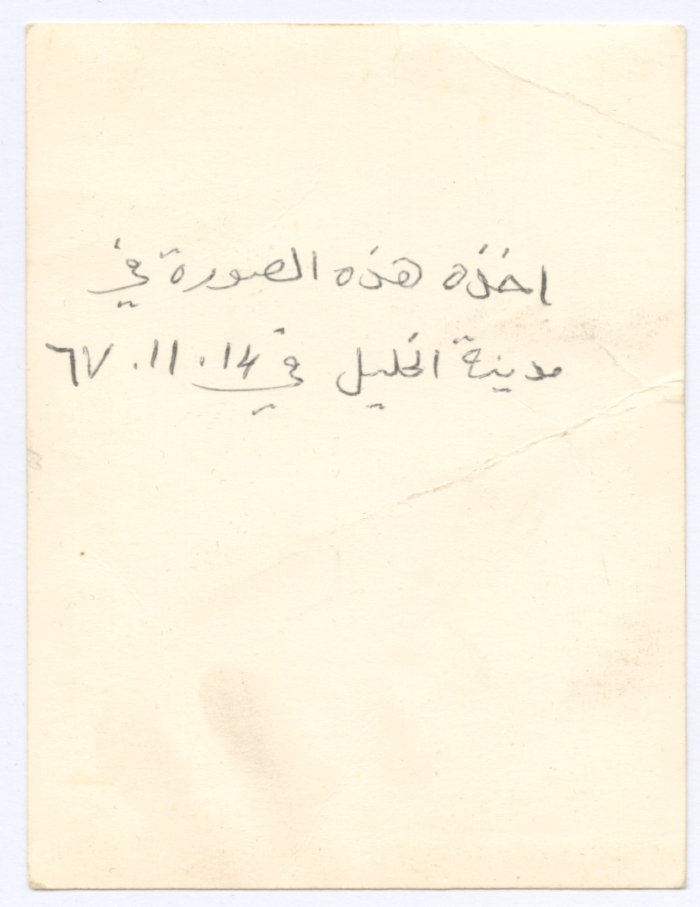 اخذه هذه الصورة في
مدينة الخليل في 14 . 11 . ٦٧